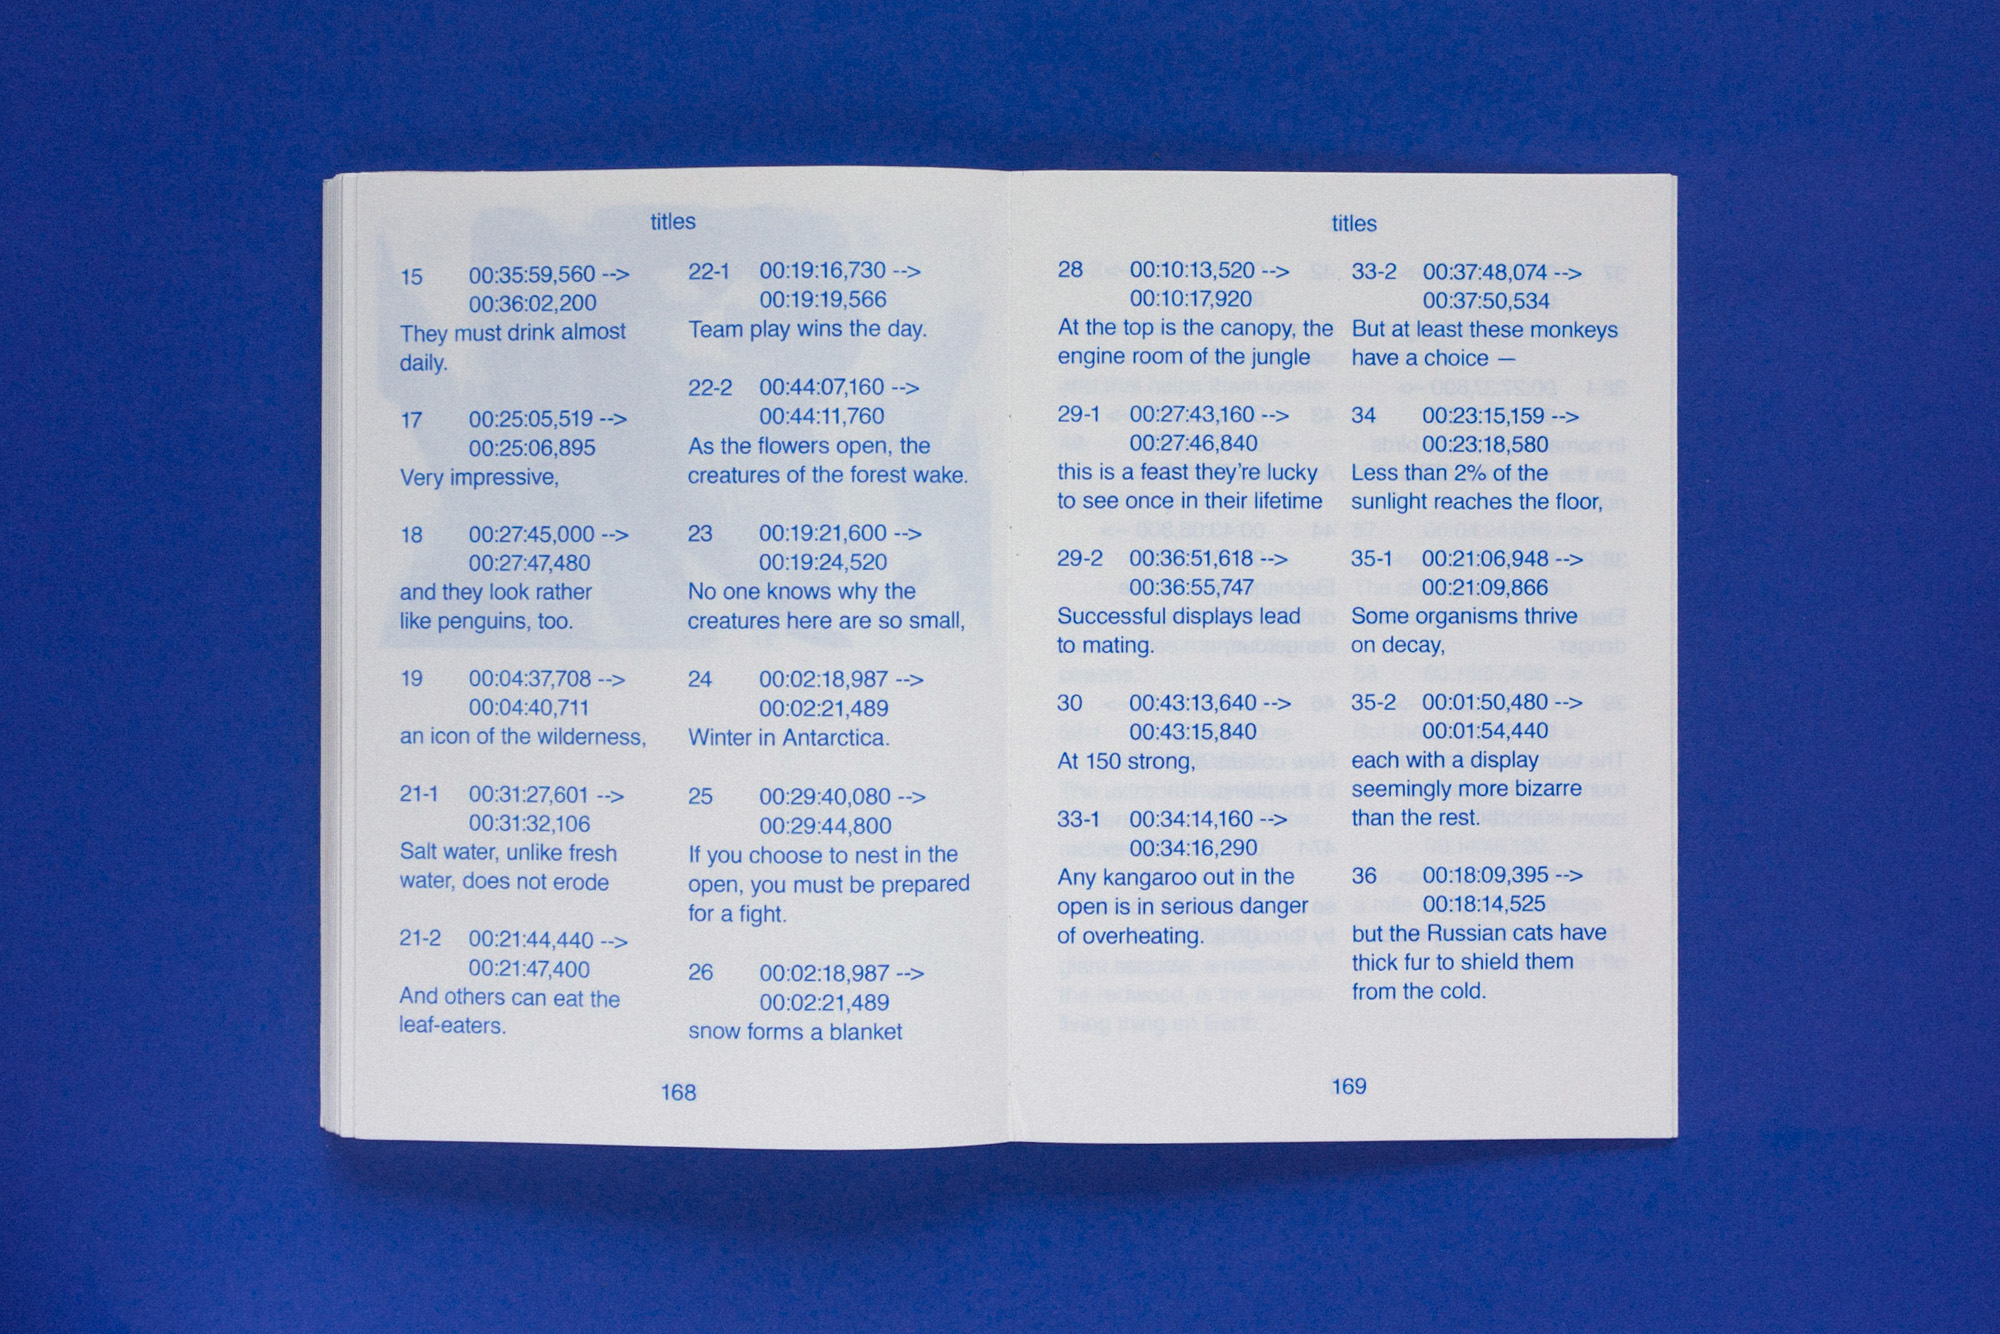 titles
15 00:35:59,560 -->
00:36:02,200
They must drink almost
daily.
17 00:25:05,519 -->
00:25:06,895
Very impressive,
18 00:27:45,000 -->
00:27:47,480
and they look rather
like penguins, too.
19 00:04:37,708 -->
00:04:40,711
an icon of the wilderness,
21-1 00:31:27,601 -->
00:31:32,106
Salt water, unlike fresh
water, does not erode
21-2 00:21:44,440 -->
00:21:47,400
And others can eat the
leaf-eaters.
22-1 00:19:16,730 -->
00:19:19,566
Team play wins the day.
22-2 00:44:07,160 -->
00:44:11,760
As the flowers open, the
creatures of the forest wake.
23 00:19:21,600 -->
00:19:24,520
No one knows why the
creatures here are so small,
24 00:02:18,987 -->
00:02:21,489
Winter in Antarctica.
25 00:29:40,080 -->
00:29:44,800
If you choose to nest in the
open, you must be prepared
for a fight.
26 00:02:18,987 -->
00:02:21,489
snow forms a blanket
168
titles
28 00:10:13,520 -->
00:10:17,920
At the top is the canopy, the
engine room of the jungle
29-1 00:27:43,160 -->
00:27:46,840
this is a feast they're lucky
to see once in their lifetime
29-2 00:36:51,618 -->
00:36:55,747
Successful displays lead
to mating.
30 00:43:13,640 -->
00:43:15,840
At 150 strong,
33-1 00:34:14,160 -->
00:34:16,290
Any kangaroo out in the
open is in serious danger
of overheating.
33-2 00:37:48,074 -->
00:37:50,534
But at least these monkeys
have a choice —
34 00:23:15,159 -->
00:23:18,580
Less than 2% of the
sunlight reaches the floor,
35-1 00:21:06,948 -->
00:21:09,866
Some organisms thrive
on decay,
35-2 00:01:50,480 -->
00:01:54,440
each with a display
seemingly more bizarre
than the rest.
36 00:18:09,395 -->
00:18:14,525
but the Russian cats have
thick fur to shield them
from the cold.
169